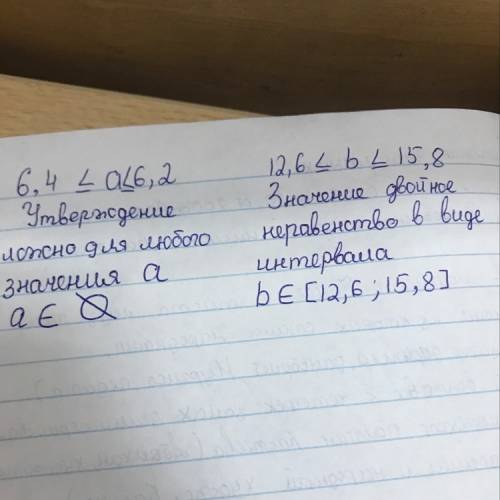 6,4 ≤ a ≤ 6,2
Утверждение
ложно для любого
значения a
a ∈ ∅
12,6 ≤ b ≤ 15,8
Значение двойное
неравенство в виде
интервала
b ∈ [12,6 ; 15,8]